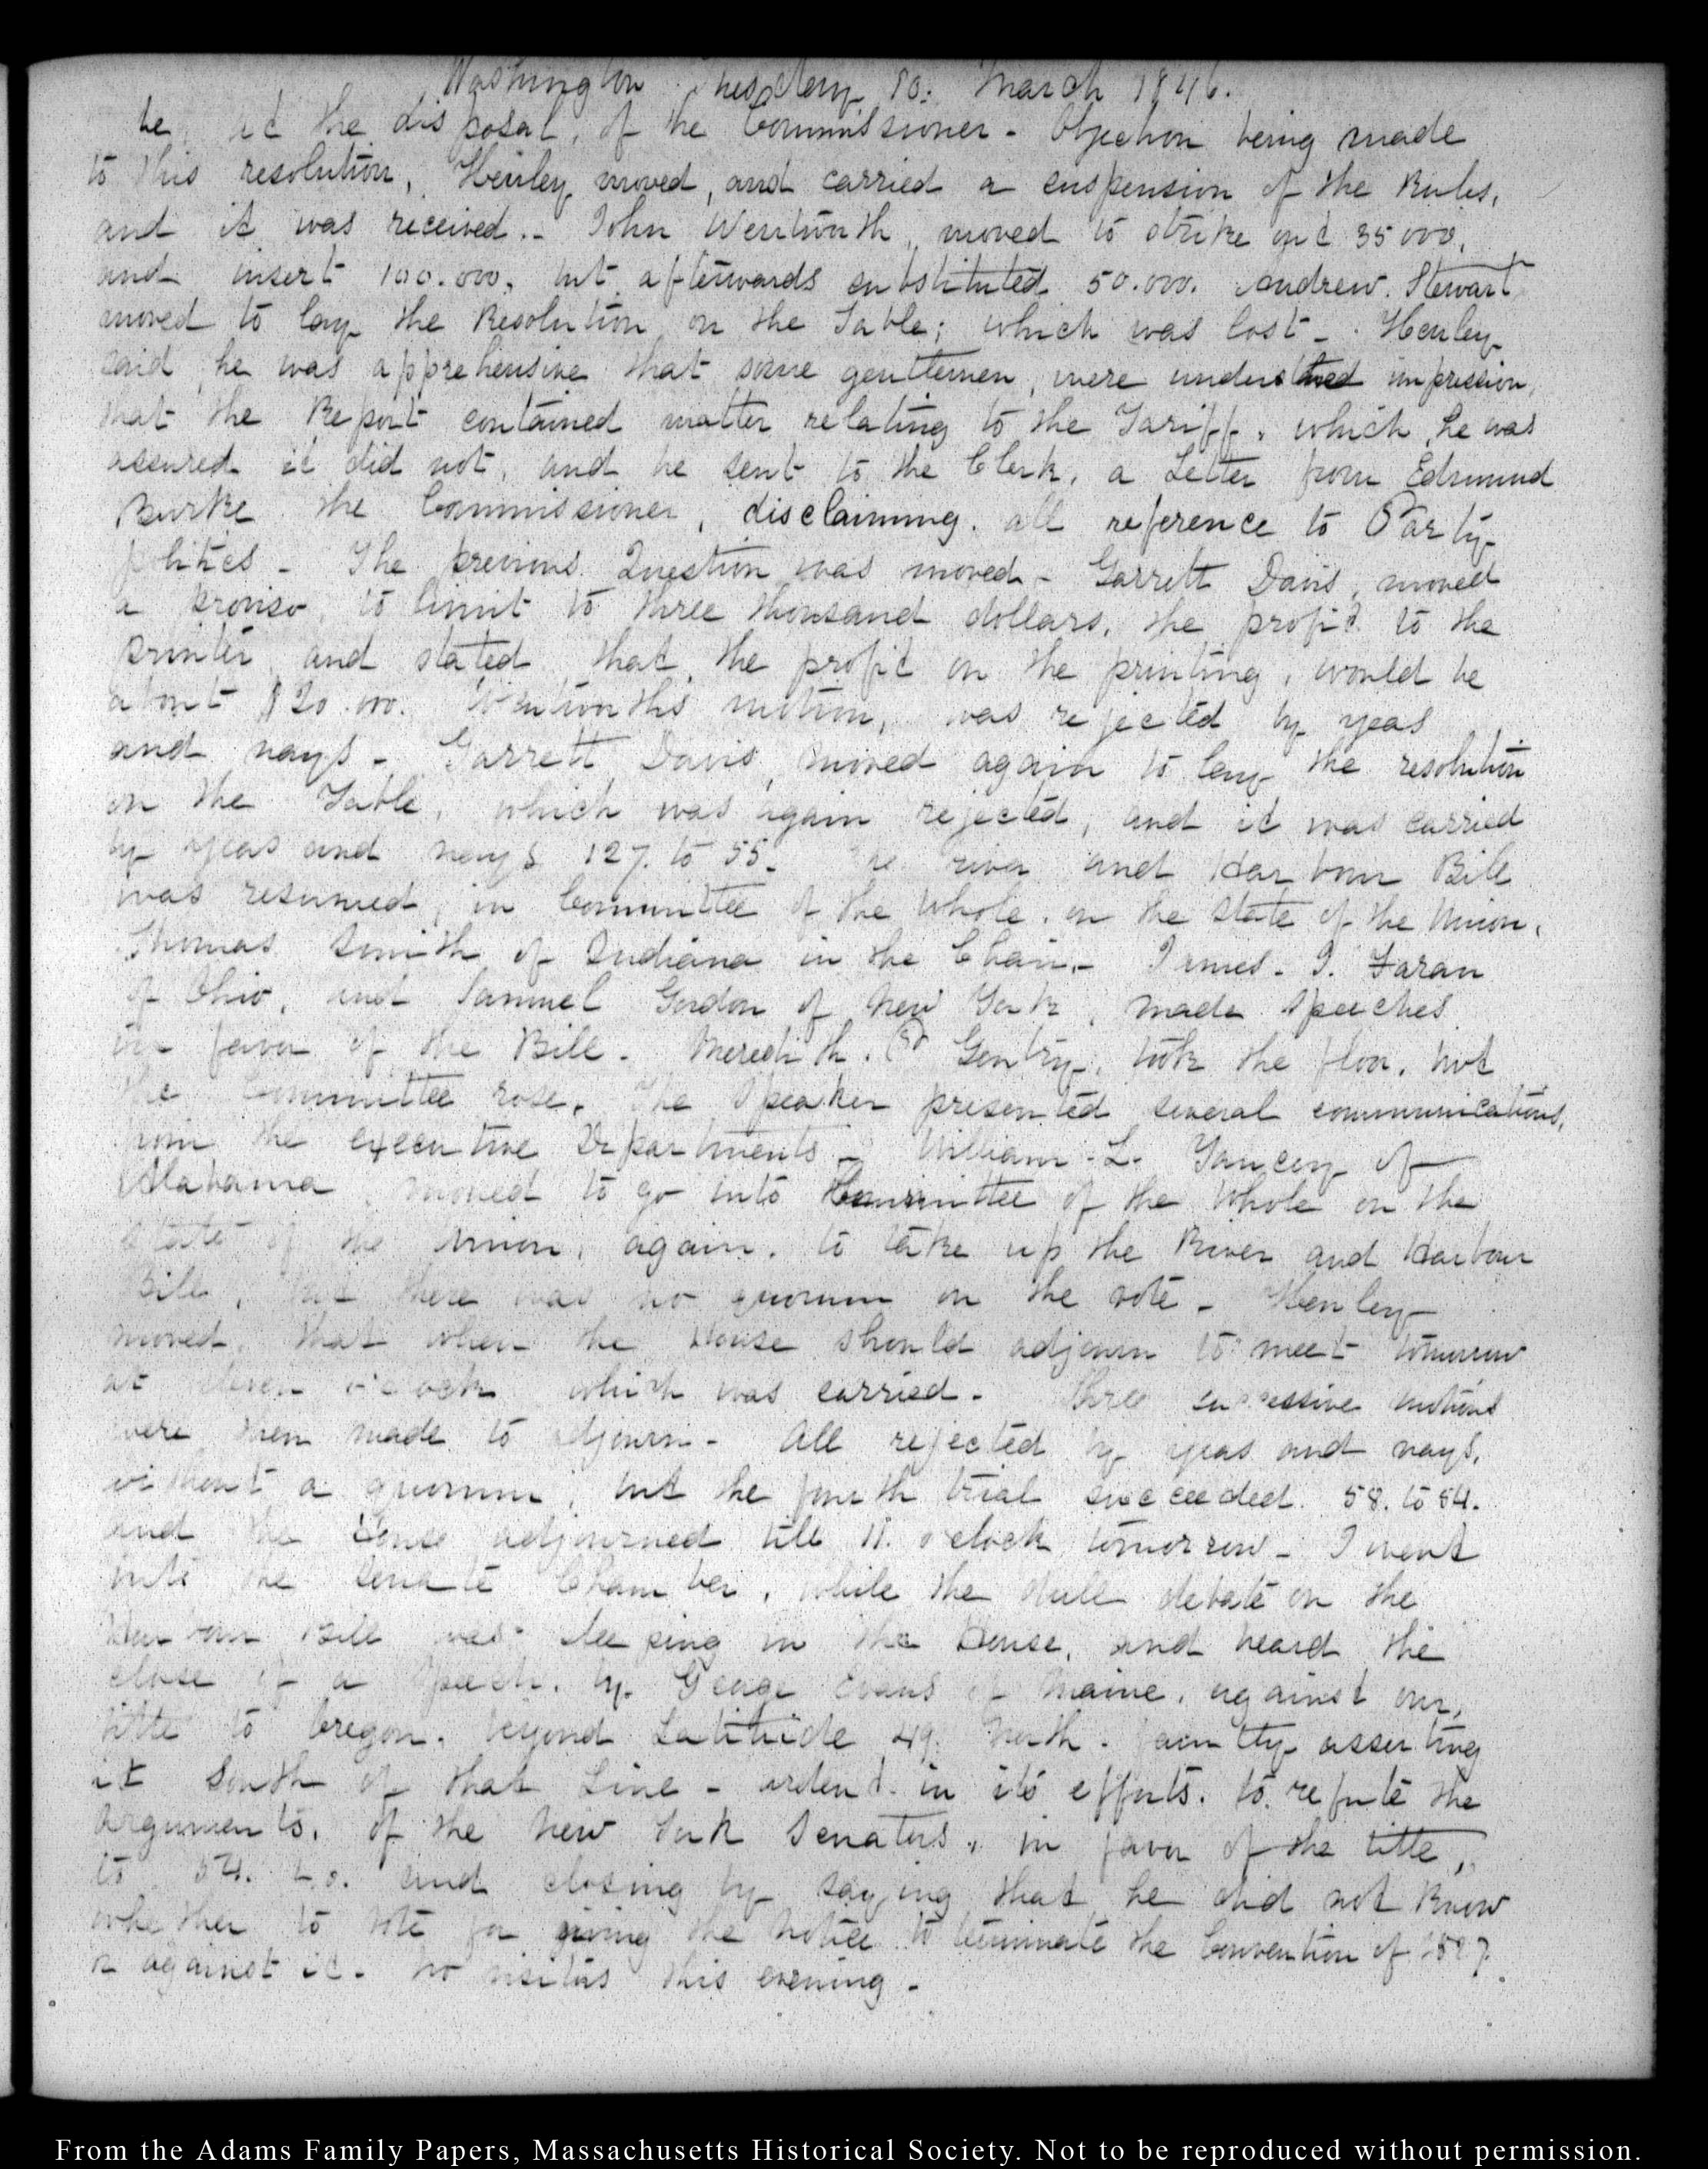 Washington Tuesday 10. March 1846.
be, at the disposal, of the Commissioner - Objection being made
to this resolution, Henley moved, and carried a suspension of the Rules,
and it was received.- John Wentworth, moved to strike out 35000,
and insert 100.000, but afterwards substituted 50.000. Andrew Stewart
moved to lay the Resolution on the Table; which was lost - Henley
said he was apprehensive that some gentlemen, were under the impression,
that the Report contained matter relating to the Tariff, which he was
assured it did not, and he sent to the Clerk, a Letter from Edmund
Burke the Commissioner, disclaiming all reference to Party
politics - The previous Question was moved - Garrett Davis, moved
a proviso, to limit to three thousand dollars, the profit to the
printer and stated that the profit on the printing, would be
about $20.000. Wentworths motion, was rejected by yeas
and nays - Garrett Davis, moved again to lay the resolution
on the Table, which was again rejected, and it was carried
by yeas and nays 127. to 55. The river and Harbour Bill
was resumed, in Committee of the Whole, on the state of the Union,
Thomas Smith of Indiana in the Chair - James. J. Faran
of Ohio, and Samuel Gordon of New York, made speeches
in favor of the Bill. Meredith. P. Gentry, took the floor, but
the Committee rose. The Speaker presented several communications,
from the executive Departments - William. L. Yancey of
Alabama, moved to go into Committee of the Whole on the
State of the Union, again, to take up the River and Harbour
Bill, but there was no quorum on the vote - Henley
moved, that when the House should adjourn to meet tomorrow
at eleven o'clock which was carried - Three successive motions
were then made to adjourn - All rejected by yeas and nays,
without a quorum, but the fourth trial succeeded. 58. to 54.
and the House adjourned till 11. o'clock tomorrow - I went
into the Senate Chamber, while the dull debate on the
Harbour Bill was sleeping in the House, and heard the
close of a Speech, by George Evans of Maine, against our,
title to Oregon, beyond Latitude 49. North - faintly asserting
it South of that Line - ardent in its efforts, to refute the
arguments, of the New York Senators, in favor of the title,
to 54. 40. and closing by saying that he did not know
whether to vote for giving the notice to terminate the Convention of 1827.
or against it - No visitors this evening -
From the Adams Family Papers, Massachusetts Historical Society. Not to be reproduced without permission.